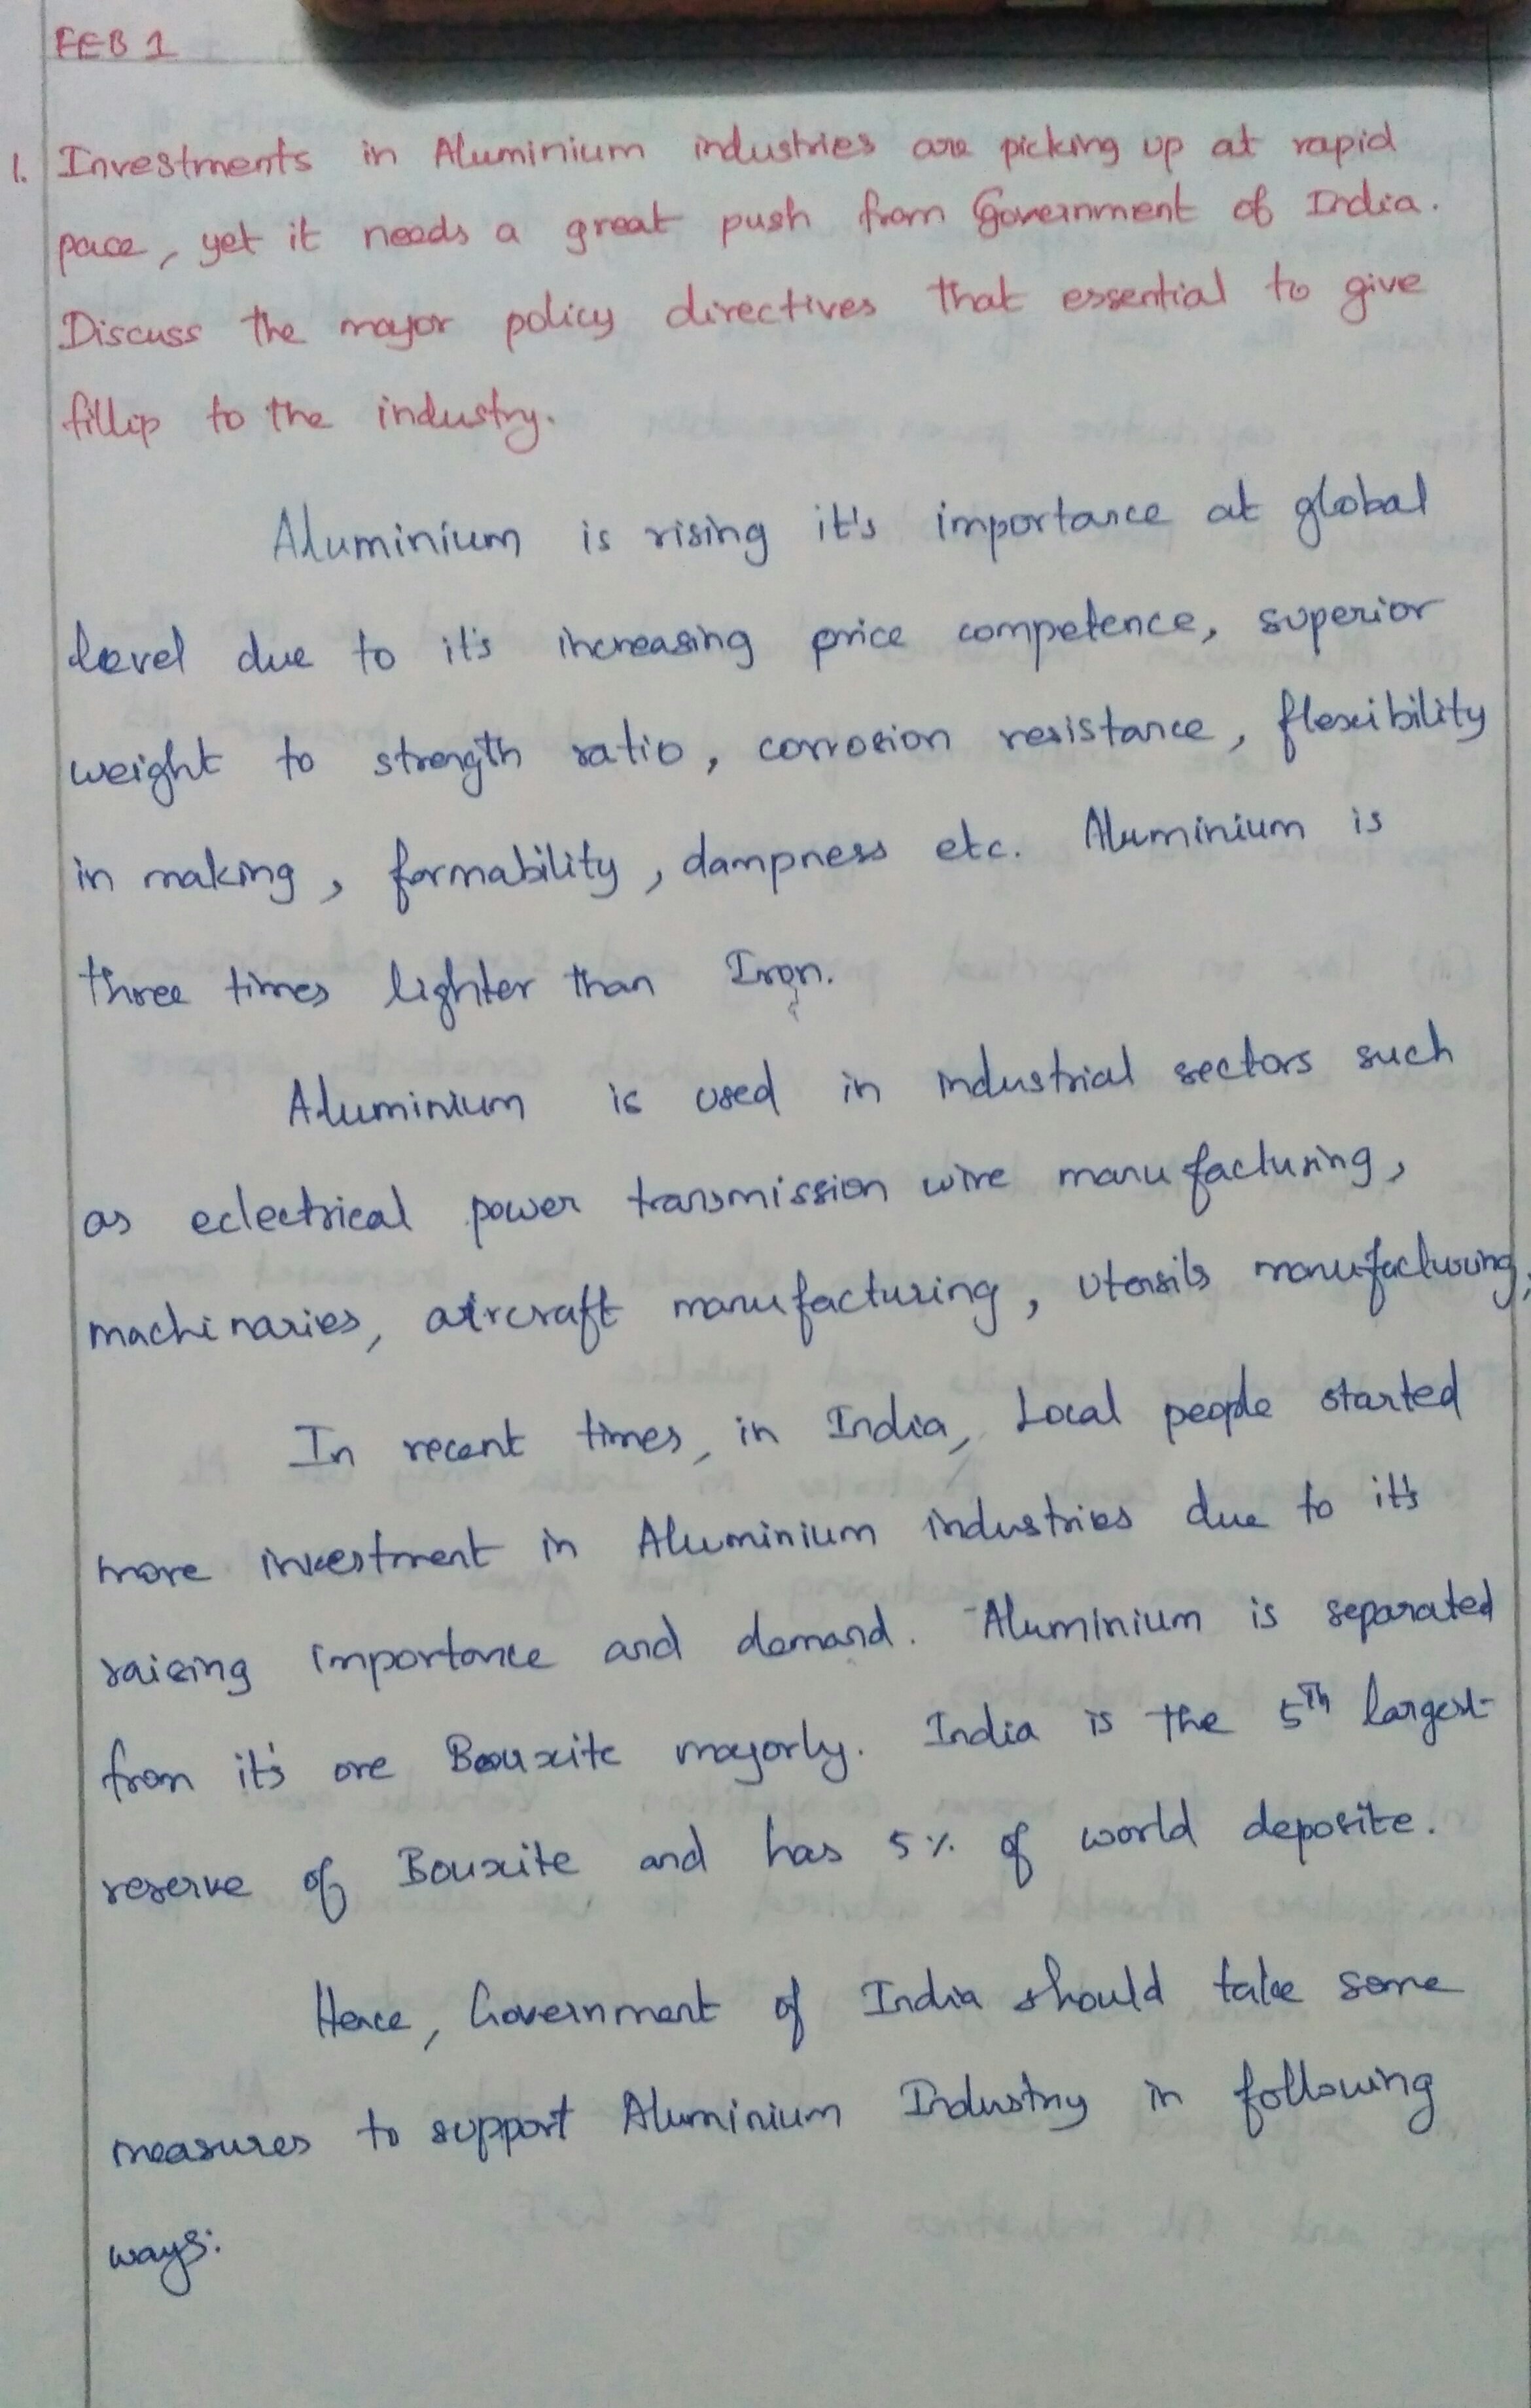 FEB 1
1. Investments in Aluminium industries are picking up at rapid
pace, yet it needs a great push from Government of India.
Discuss the major policy directives that essential to give
fillip to the industry.
Aluminium is rising it's importance at global
level due to it's increasing price competence, superior
weight to strength ratio, corrosion resistance, flexibility
in making, formability, dampness etc. Aluminium is
three times lighter than Iron.
Aluminium is used in industrial sectors such
as eclectrical power transmission wire manufacturing,
machinaries, aircraft manufacturing, utensils manufacturing,
In recent times, in India, Local people started
more investment in Aluminium industries due to it's
raising importance and demand. Aluminium is separated
from it's ore Bouxite majorly. India is the 5th largest
reserve of Bouxite and has 5% of world deposite.
Hence, Government of India should take some
measures to support Aluminium Industry in following
ways: